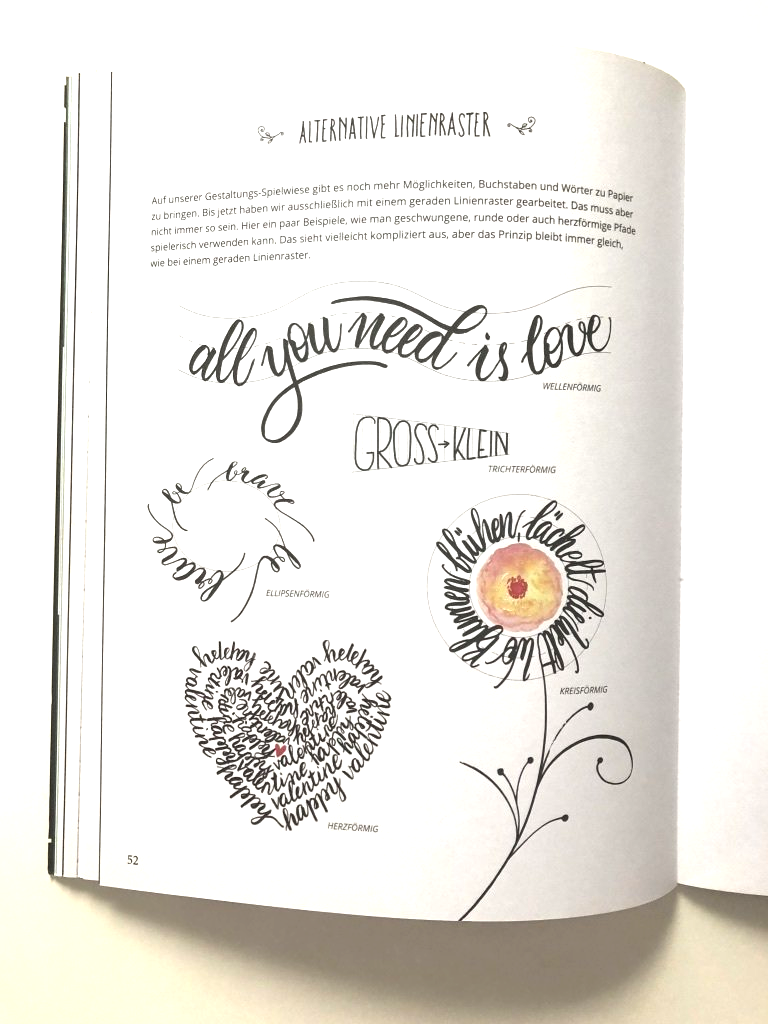 ALTERNATIVE LINIENRASTER
Auf unserer Gestaltungs-Spielwiese gibt es noch mehr Möglichkeiten, Buchstaben und Wörter zu Papier
zu bringen. Bis jetzt haben wir ausschließlich mit einem geraden Linienraster gearbeitet. Das muss aber
nicht immer so sein. Hier ein paar Beispiele, wie man geschwungene, runde oder auch herzförmige Pfade
spielerisch verwenden kann. Das sieht vielleicht kompliziert aus, aber das Prinzip bleibt immer gleich,
wie bei einem geraden Linienraster.
all you need is love
WELLENFÖRMIG
GROSS→KLEIN
TRICHTERFÖRMIG
be brave
be brave
ELLIPSENFÖRMIG
Wo Blumen blühen, lächelt die Welt
KREISFÖRMIG
happy valentine
valentine happy
HERZFÖRMIG
52